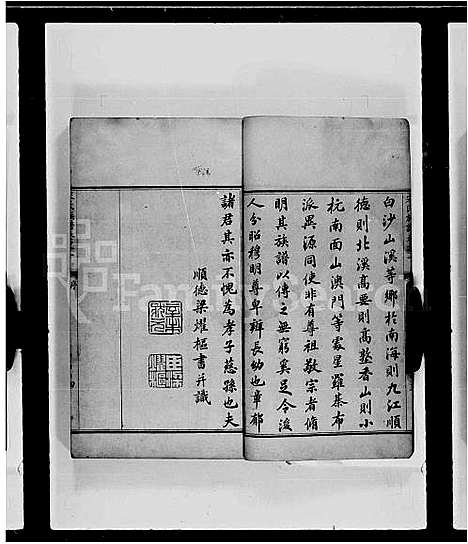 白沙山溪等鄉於南海則九江順
德則北滘高要則高塾香山則小
杭南面山澳門等處星羅棊布
派異源同使非有尊祖敬宗者脩
明其族譜以傳之無窮奚足令後
人分昭穆明尊卑辨長幼也章郁
諸君其亦不愧為孝子慈孫也夫
順德梁燿樞書并識
FamilySearch